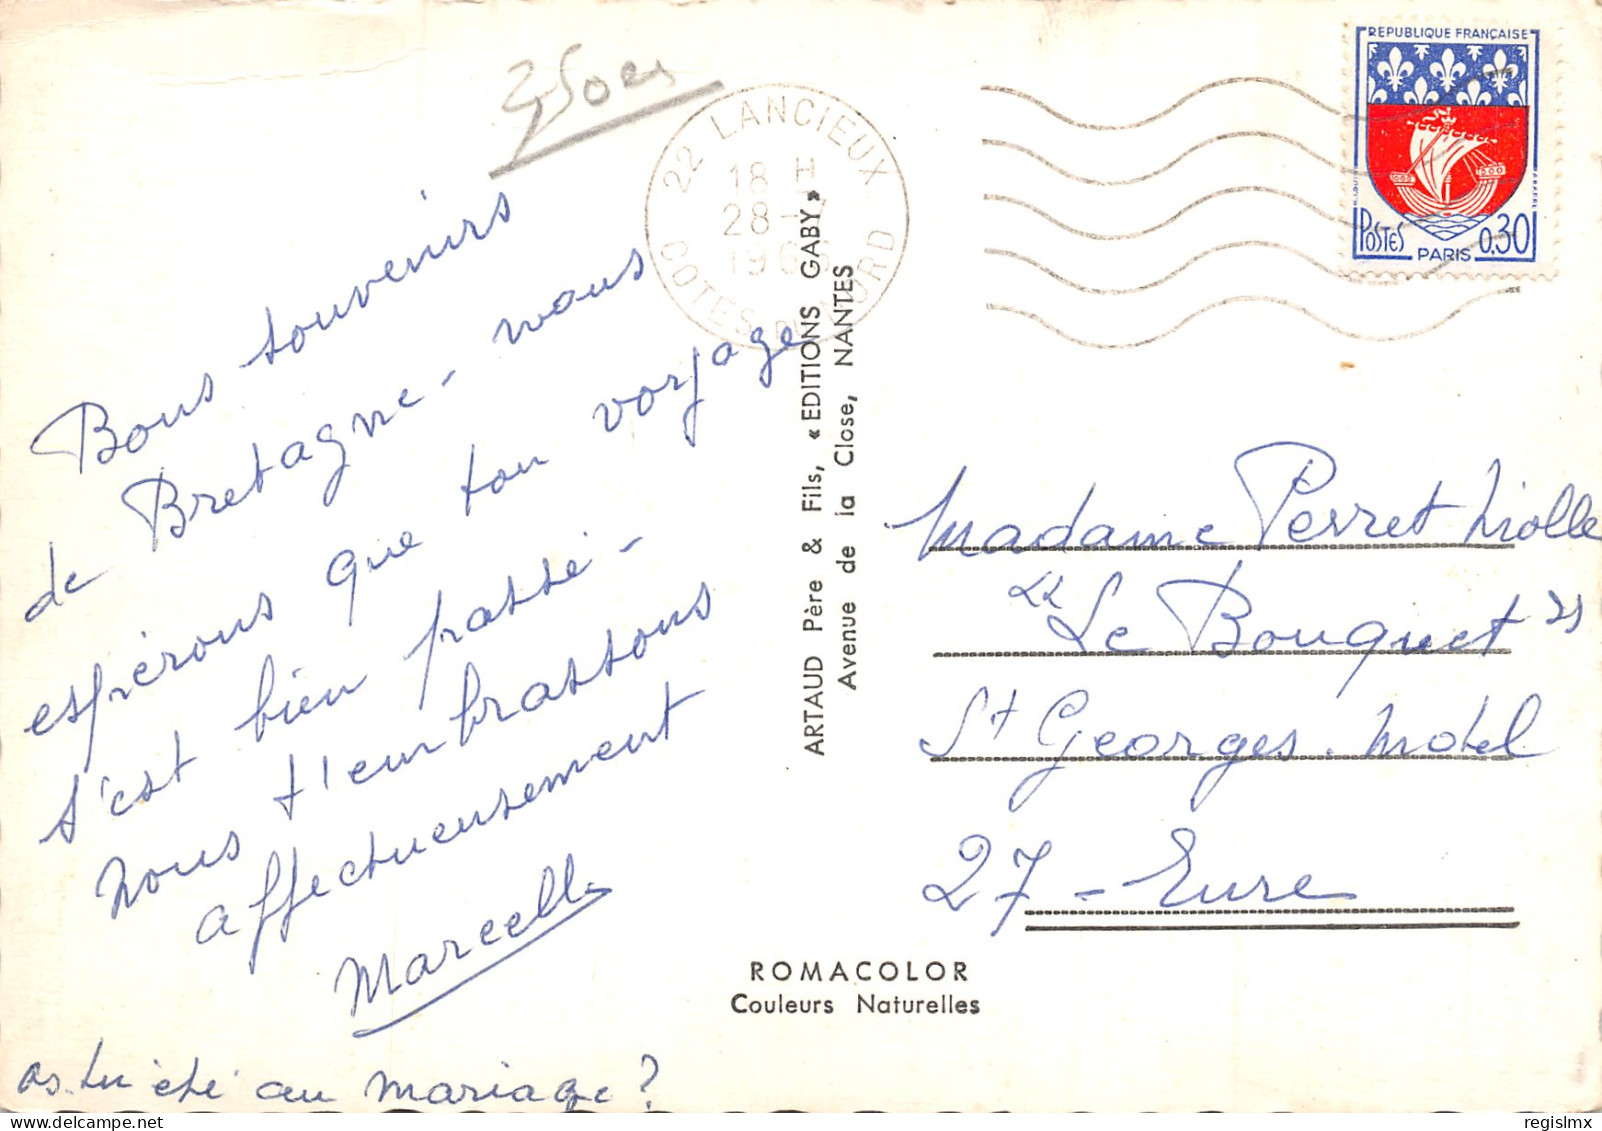 Bons souvenirs
de Bretagne - nous
espérons que ton voyage
s'est bien passé -
nous t'embrassons
affectueusement
Marcelle
as-tu été au mariage ?
22 LANCIEUX
18 H
28 -7
1966
COTES DU NORD
ARTAUD Père & Fils, « EDITIONS GABY »
Avenue de la Close, NANTES
REPUBLIQUE FRANÇAISE
POSTES
0,30
PARIS
Madame Perret
"Le Bouquet"
St Georges. Motel
27 - Eure
ROMACOLOR
Couleurs Naturelles
regislmx